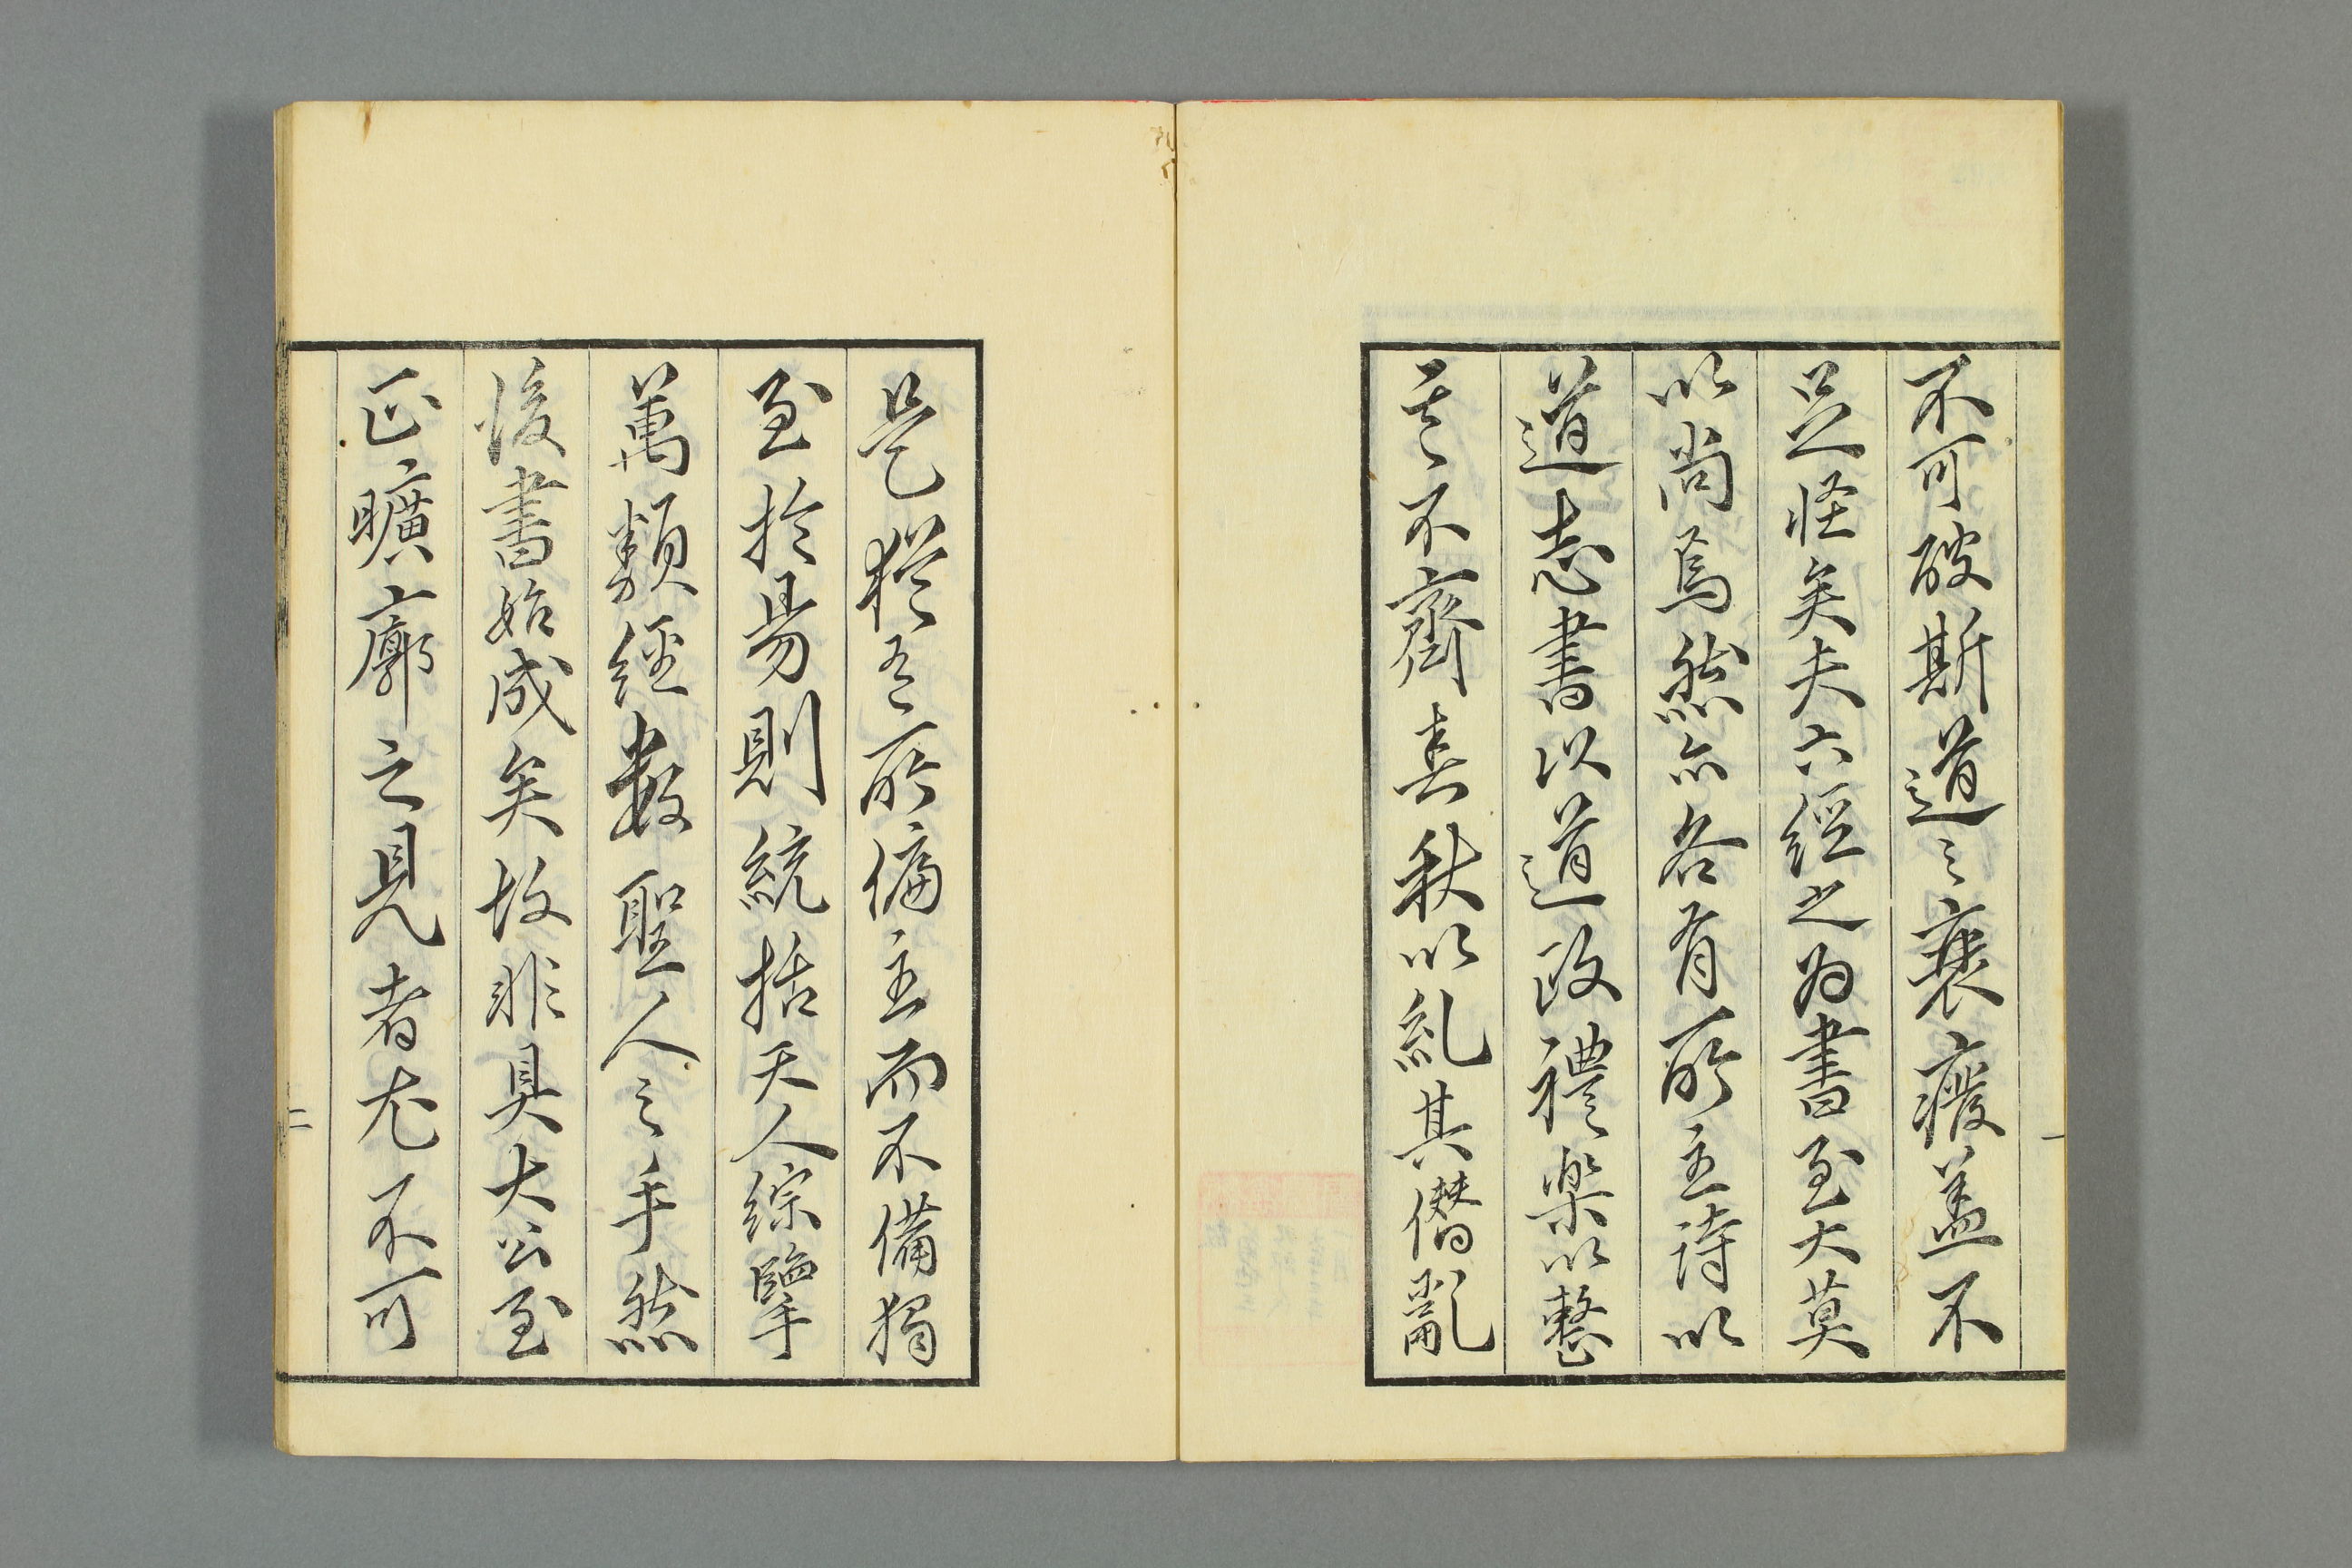 不可破斯道之衰癈盖不
足怪矣夫六經之為書至大莫
以尚焉然亦各有所主詩以
道志書以道政禮樂以整
其不齊春秋以糺其僭亂
是猶有所偏主而不備獨
至於易則統括天人綜擥
萬類經數聖人之手然
後書始成矣故非具大公至
正曠廓之見者尤不可
一
二